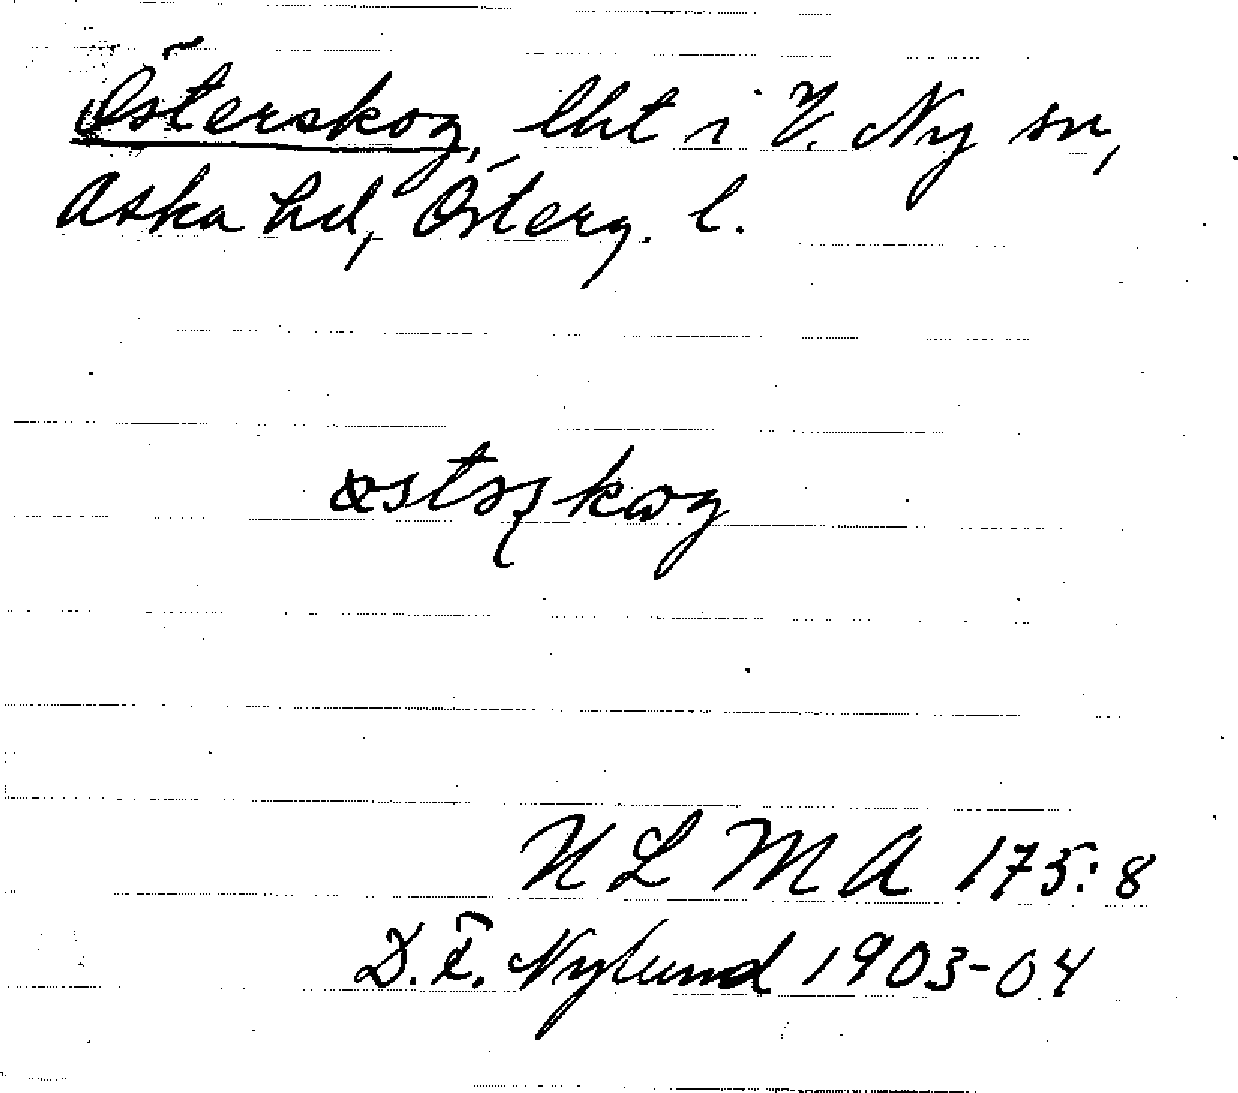 Österskog, lht i V. Ny sn,
Aska hd, Österg. l.
N L M A 175:8
D.F. Nylund 1903-04